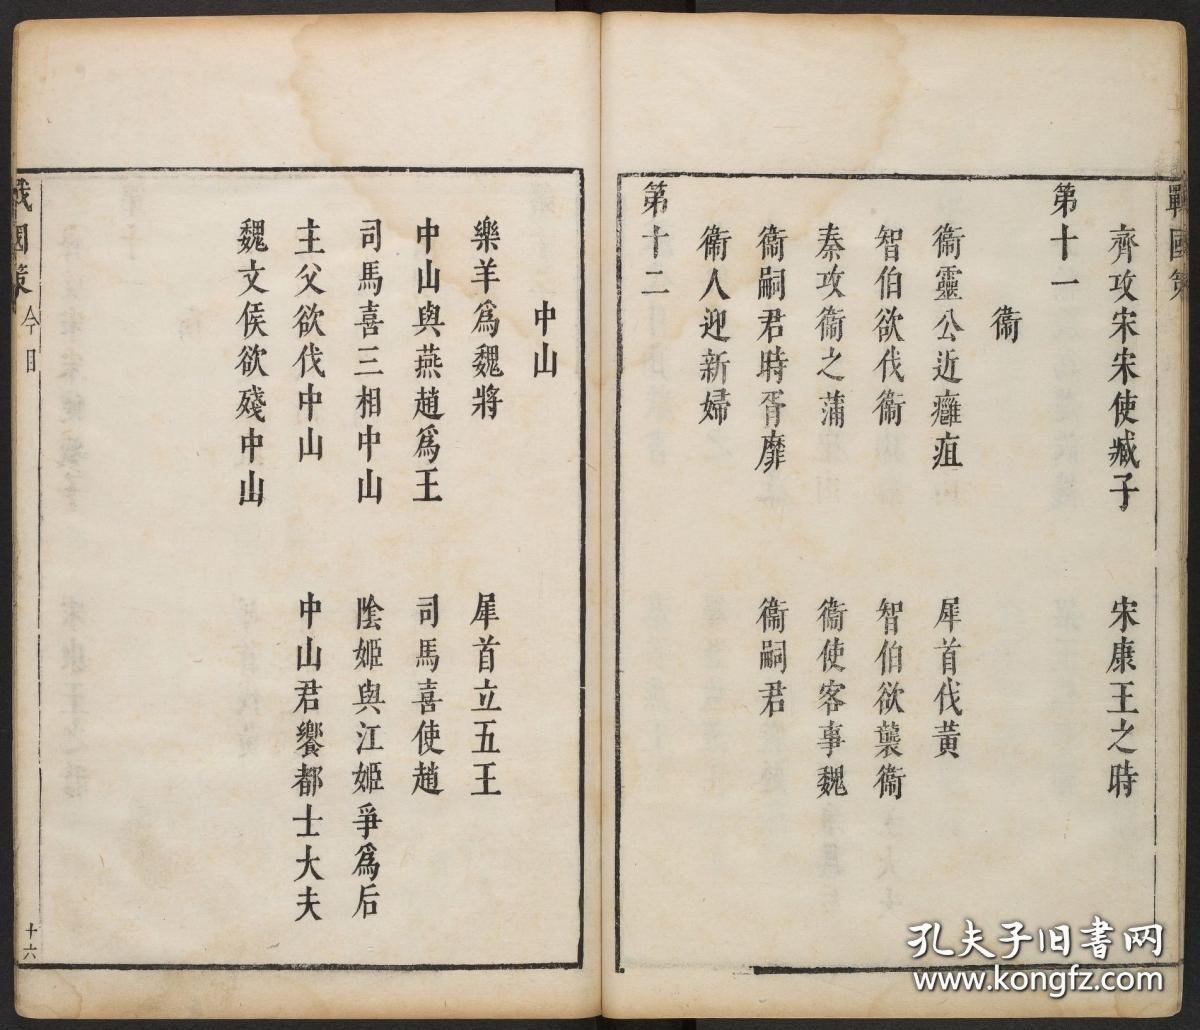 戰國策
齊攻宋宋使臧子　宋康王之時
第十一
衞
衞靈公近癰疽　犀首伐黃
智伯欲伐衞　智伯欲襲衞
秦攻衞之蒲　衞使客事魏
衞嗣君時胥靡　衞嗣君
衞人迎新婦
第十二
中山
樂羊爲魏將　犀首立五王
中山與燕趙爲王　司馬喜使趙
司馬喜三相中山　陰姬與江姬爭爲后
主父欲伐中山　中山君饗都士大夫
魏文侯欲殘中山
戰國策　今目　十六
孔夫子旧书网
www.kongfz.com